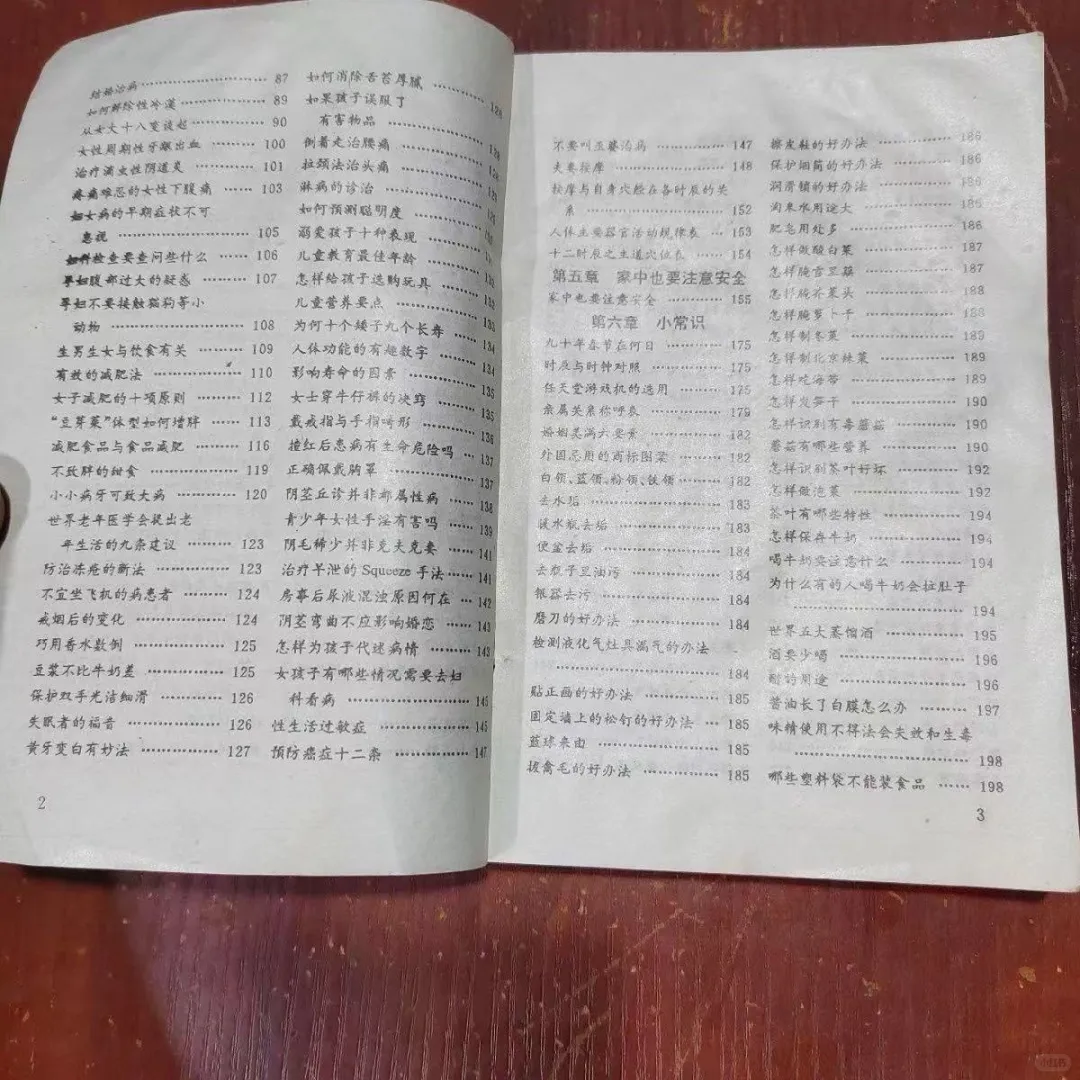 结婚治病 87
如何解除性冷漠 89
从女大十八变谈起 90
女性周期性牙龈出血 100
治疗滴虫性阴道炎 101
疼痛难忍的女性下腹痛 103
妇女病的早期症状不可
忽视 105
妇科检查要查问些什么 106
孕妇腹部过大的疑惑 107
孕妇不要接触猫狗等小
动物 108
生男生女与饮食有关 109
有效的减肥法 110
女子减肥的十项原则 112
“豆芽菜”体型如何增胖 113
减肥食品与食品减肥 116
不致胖的甜食 119
小小病牙可致大病 120
世界老年医学会提出老
年生活的九条建议 123
防治冻疮的新法 123
不宜坐飞机的病患者 124
戒烟后的变化 124
巧用香水数例 125
豆浆不比牛奶差 125
保护双手光洁细滑 126
失眠者的福音 126
黄牙变白有妙法 127
2
如何消除舌苔厚腻
如果孩子误服了
有害物品
倒着走治腰痛
拉颈法治头痛
淋病的诊治
如何预测聪明度
溺爱孩子十种表现
儿童教育最佳年龄
怎样给孩子选购玩具
儿童营养要点 133
为何十个矮子九个长寿 134
人体功能的有趣数字 134
影响寿命的因素 135
女士穿牛仔裤的决窍 135
戴戒指与手指畸形 136
撞红后患病有生命危险吗 137
正确佩戴胸罩 137
阴茎丘诊并非都属性病 138
青少年女性手淫有害吗 139
阴毛稀少并非克夫克妻 141
治疗早泄的Squeeze手法 141
房事后尿液混浊原因何在 142
阴茎弯曲不应影响婚恋 143
怎样为孩子代述病情 143
女孩子有哪些情况需要去妇
科看病 145
性生活过敏症 145
预防癌症十二条 147
不要叫巫婆治病 147
夫妻按摩 148
按摩与自身穴脸在各时辰的关
系 152
人体主要器官活动规律表 153
十二时辰之主道穴位表 154
第五章 家中也要注意安全
家中也要注意安全 155
第六章 小常识
九十年春节在何日 175
时辰与时钟对照 175
任天堂游戏机的选用 175
亲属关系称呼表 179
婚姻美满六要素 182
外国忌质的商标图案 182
白领、蓝领、粉领、铁领 182
去水垢 183
暖水瓶去垢 183
便盆去垢 184
去瓶子里油污 184
银器去污 184
磨刀的好办法 184
检测液化气灶具漏气的办法
184
贴正画的好办法 185
固定墙上的松钉的好办法 185
篮球来由 185
拔禽毛的好办法 185
擦皮鞋的好办法 186
保护烟筒的好办法 186
润滑锁的好办法 186
淘米水用途大 186
肥皂用处多 186
怎样做酸白菜 187
怎样腌雪里蕻 187
怎样腌芥菜头 188
怎样腌萝卜干 188
怎样制冬菜 189
怎样制北京辣菜 189
怎样吃海带 189
怎样发笋干 190
怎样识别有毒蘑菇 190
蘑菇有哪些营养 190
怎样识别茶叶好坏 192
怎样做泡菜 192
茶叶有哪些特性 194
怎样保存牛奶 194
喝牛奶要注意什么 194
为什么有的人喝牛奶会拉肚子
194
世界五大蒸馏酒 195
酒要少喝 196
酎的用途 196
酱油长了白膜怎么办 197
味精使用不得法会失效和生毒
198
哪些塑料袋不能装食品 198
3